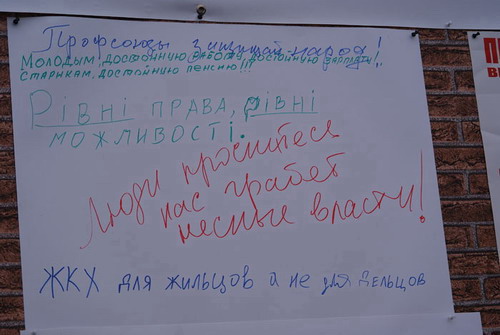 Профсоюзы защищай народ!
Молодым, достойную работу, достойную зарплату!,
Старикам, достойную пенсию!!!
Рівні права, рівні
можливості.
Люди проснитесь
нас грабет
власти!
ЖКХ для жильцов а не для дельцов